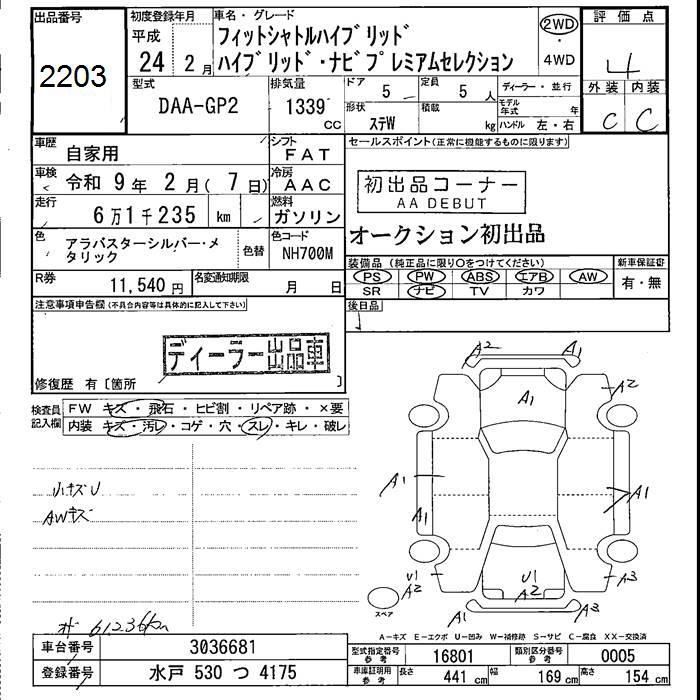 出品番号
2203
初度登録年月
平成
24 2 月
車名・グレード
フィットシャトルハイブリッド
ハイブリッド・ナビプレミアムセレクション
2WD
・
4WD
評価点
4
外装 内装
C C
型式
DAA-GP2
排気量
1339
CC
ドア
5
定員
5 人
形状
ステW
積載
kg
ディーラー・並行
モデル年式 年
ハンドル 左・右
車歴
自家用
シフト
FAT
車検
令和 9年 2月( 7日)
冷房
AAC
走行
6万1千235 km
燃料
ガソリン
色
アラバスターシルバー・メタリック
色替
色コード
NH700M
R券
11,540 円
名変通知期限
月 日
セールスポイント(正常に機能するものに限ります)
初出品コーナー
AA DEBUT
オークション初出品
装備品(純正品に限り○をつけてください)
PS PW ABS エアB AW
SR ナビ TV カワ
新車保証書
有・無
後日品
注意事項申告欄(不具合内容等は具体的に記入して下さい)
ディーラー出品車
修復歴 有〔箇所 〕
検査員記入欄
FW キズ・飛石・ヒビ割・リペア跡・×要
内装 キズ・汚レ・コゲ・穴・スレ・キレ・破レ
小キズU
AWキズ
61236km
A2 A1
A1
A2
A1
A1
A1
U1
A2
U1
A2
A3
A1 A3
スペア
A-キズ E-エクボ U-凹み W-補修跡 S-サビ C-腐食 XX-交換済
車台番号
3036681
登録番号
水戸 530 つ 4175
型式指定番号
参考
16801
類別区分番号
参考
0005
車庫証明用
参考
長さ
441 cm
幅
169 cm
高さ
154 cm